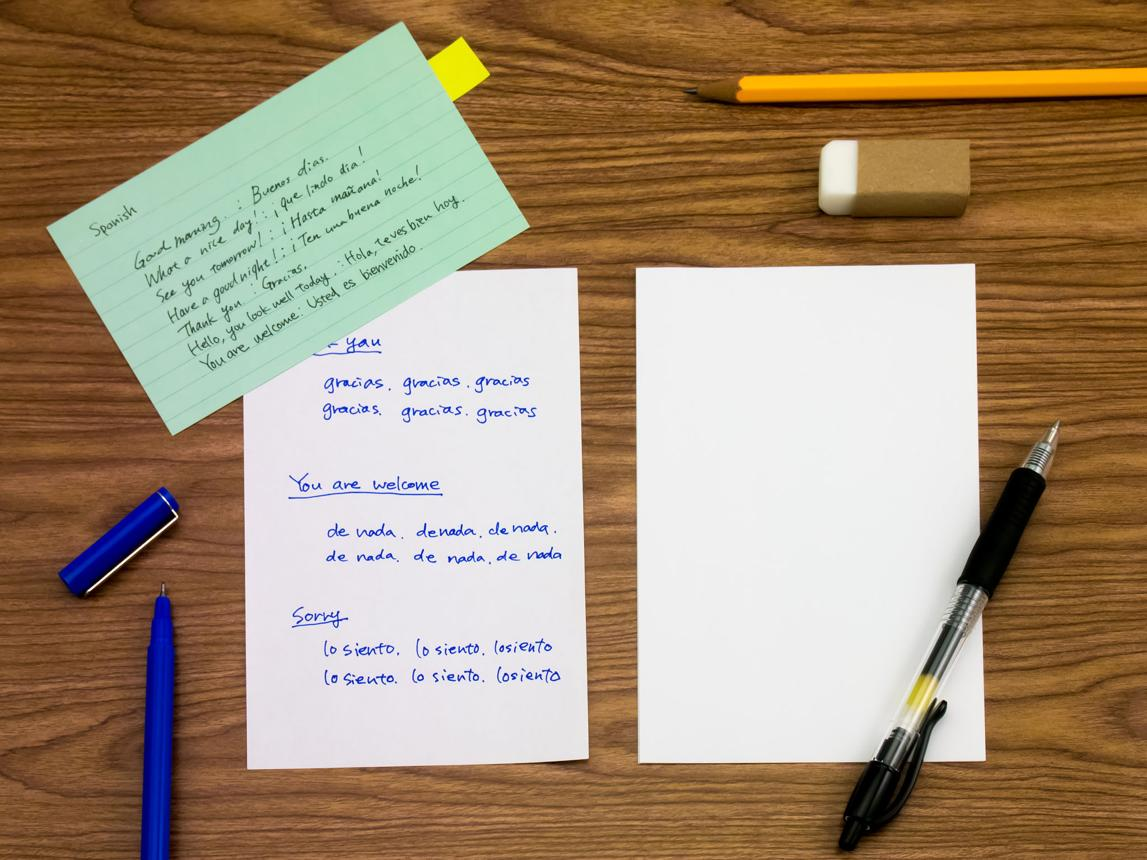 Spanish
Good morning. : Buenos días.
What a nice day! : ¡que lindo dia!
See you tomorrow! : ¡Hasta mañana!
Have a good night! : ¡Ten una buena noche!
Thank you : Gracias.
Hello, you look well today. : Hola, te ves bien hoy.
You are welcome : Usted es bienvenido.
you
gracias. gracias. gracias
gracias. gracias. gracias
You are welcome
de nada. denada. de nada.
de nada. de nada. de nada
Sorry
lo siento. lo siento. losiento
lo siento. lo siento. losiento